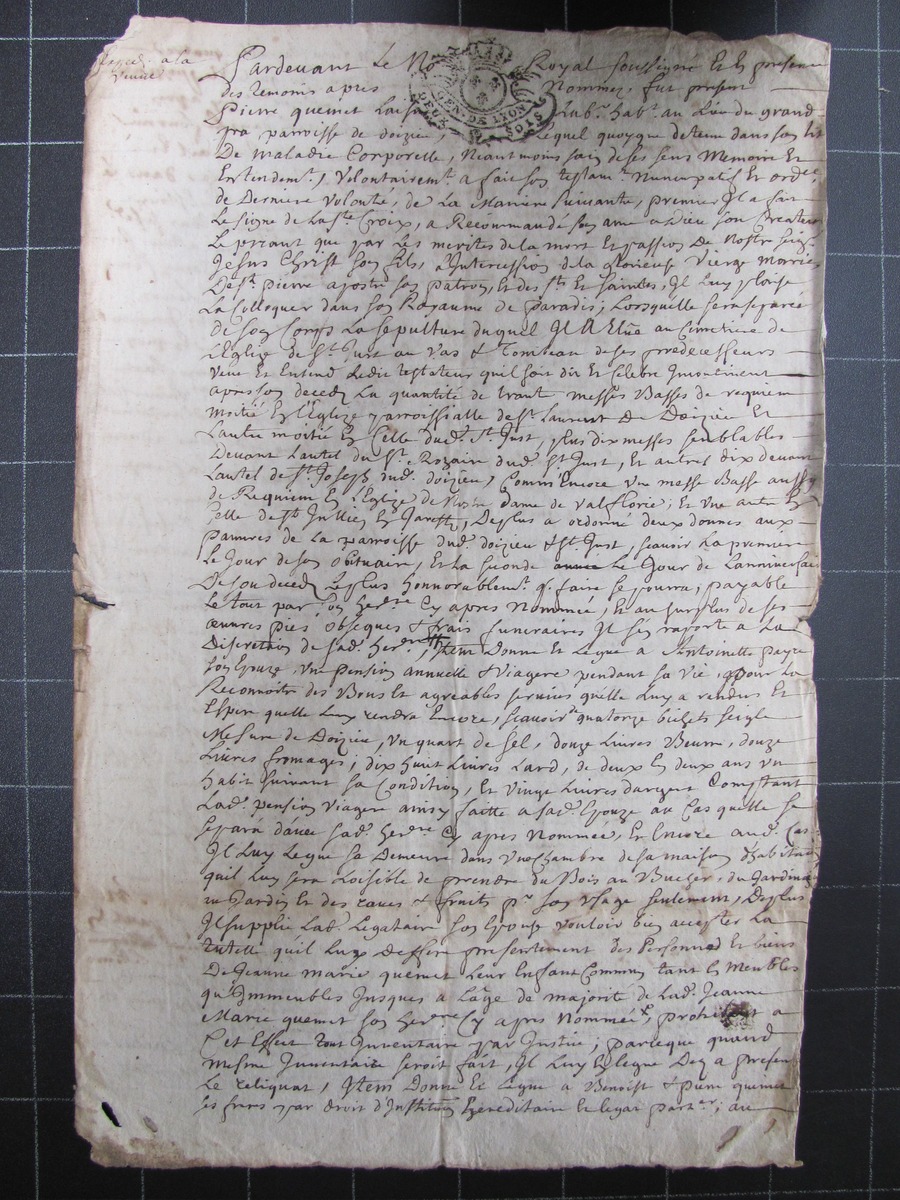 expedié a la
veuve
Pardevant Le No Royal soussigné Et En presence
des temoins apres Nommez, fut present
GEN. DE LYON
DEUX SOLS
Pierre quemet Lab.r hab.t au Lieu du grand
pra parroisse de doizieu, Lequel quoyque detenu dans son lit
De maladie Corporelle, Neantmoins sain de ses sens Memoire Et
Entendem.t, Volontairem.t a fait son testam.t Nuncupatif Et ord.re
de Derniere Volonté, de La Maniere suivante, premier Il a fait
Le signe de La s.te Croix, a Recommandé son ame a Dieu son Createur
Le priant que par Les merites de la mort Et passion De Nostre seig.r
Jesus Christ son fils, a Intercession de la glorieuse Vierge Marrie
De s.t pierre apostre son Patron, Et des s.ts Et saintes, Il Luy plaise
La Colloquer dans son Royaume de paradis, Lorsquelle sera separée
de son Corps La sepulture duquel Il A Eslue au Cimetiere de
L'Eglise de s.t Just au Vas & Tombeau de ses predecesseurs
Veut Et Entend Ledit testateur quil soit dit Et Celebré
apres son decedz La quantité de trant messes Basses de requiem
moitié En L'Eglize parroissialle de s.t Laurent De Doizieu Et
Lautre moitié En Celle dud.t s.t Just, plus dix messes semblables
Devant Lautel du s.t Rozaire dud.t st Just, Et autres dix devant
Lautel de s.t Joseph dud.t doizieu, Comm'Encore une messe Basse aussy
de Requiem En L'Eglize de Nostre dame de Valflorie; Et Une autre En
Celle de st Jullien En Jarest, De plus a ordonné deux donnes aux
pauvres de La parroisse dud.t doizieu & st Just, scavoir La premiere
Le Jour de son obituaire, Et La seconde Le Jour de Lanniversaire
De son decedz Le plus honnorablem.t q. faire se pourra, payable
Le tout par son her.re Cy apres Nommée, Et au surplus de ses
œuvres pies obseques & frais funeraires Il s'en raporte a La
Discretion de sad.e her.re Item Donne Et Legue a Anthoinette payre
son Epouze, une pension annuelle & Viagere pendant sa Vie, pour La
Reconnoitre des Bons Et agreables services quelle Luy a rendus Et
Espere quelle Luy rendra Encore, scavoir quatorze bichets seigle
Mesure de Doizieu, Un quart de sel, douze Livres Beurre, douze
Livres fromages, dix huit Livres Lard, de deux En deux ans un
habit suivant sa Condition, Et Vingt Livres d'argent Comptant
Lad.e pension Viagere ainsy faitte a sad.e Epouze au Cas quelle se
separa d'avec sad.e her.re Cy apres Nommée, Et Encore aud.t Cas
Il Luy Legue sa Demeure dans une chambre de sa maison d'habitation
quil Luy sera Loisible de prendre du Bois au Bucher, du Jardinage
au Jardin Et des raves & fruits p.r son Usage seulement, De plus
Il supplie Lad.e Legataire son Epouse vouloir bien accepter La
Tutelle quil Luy Deffere presentement des Personnes Et biens
De Jeanne marie quemet Leur Enfant Commun tant En Meubles
qu'Immeubles Jusques a L'age de majorité de Lad.e Jeanne
Marie quemet son her.re Cy apres Nommée, a
Cet Effect tout Inventaire par Justice, parceque quand
mesme Inventaire seroit fait, Il Luy En Legue Dez a present
Le reliquat, Item Donne Et Legue a Benoist & pierre quemet
ses freres par droit d'Institution Hereditaire Et legat part.er, au